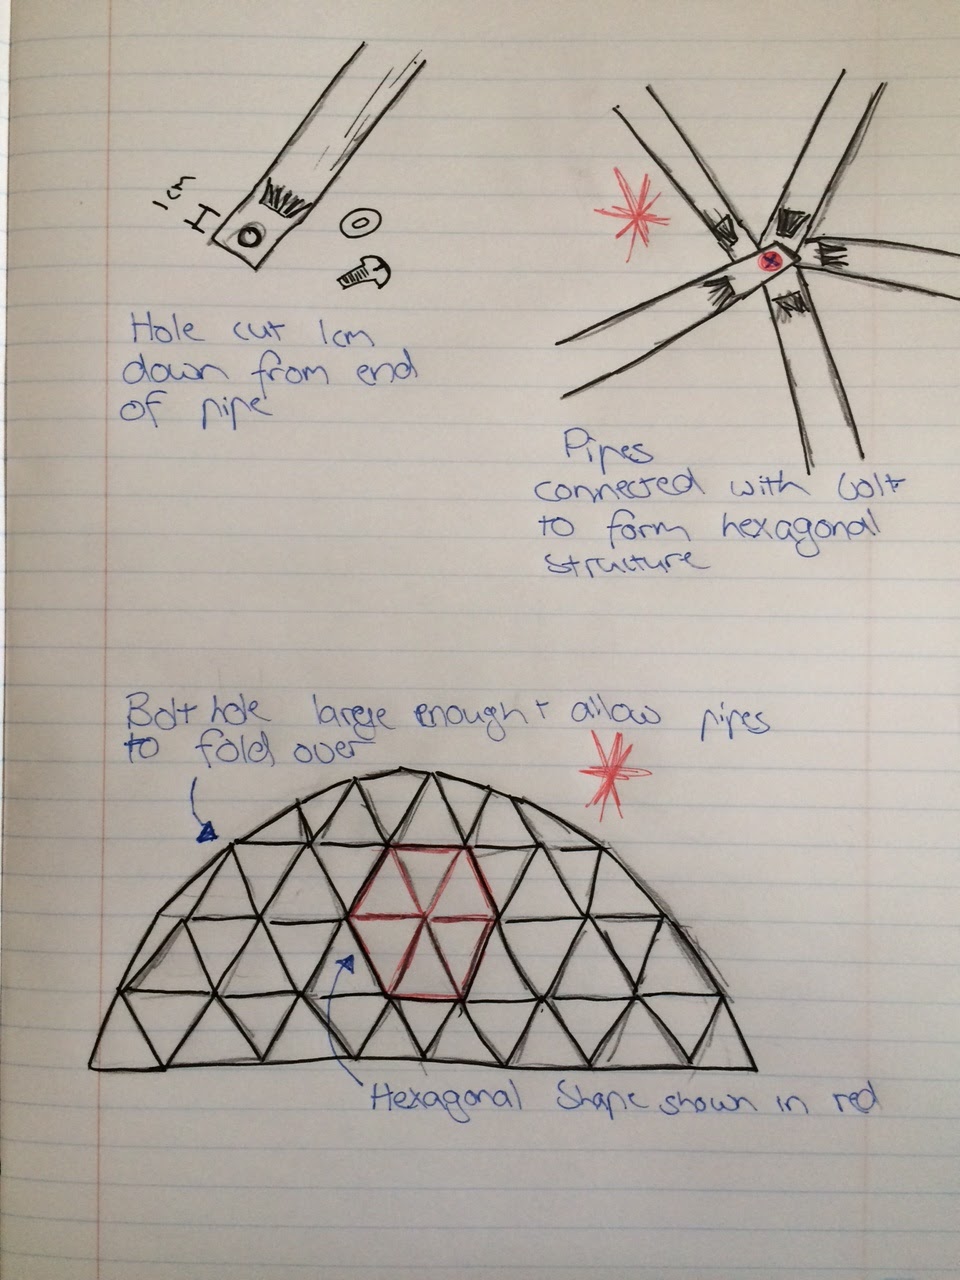 1cm
Hole cut 1cm
down from end
of pipe
Pipes
connected with bolt
to form hexagonal
structure
Bolt hole large enough + allow pipes
to fold over
Hexagonal Shape shown in red